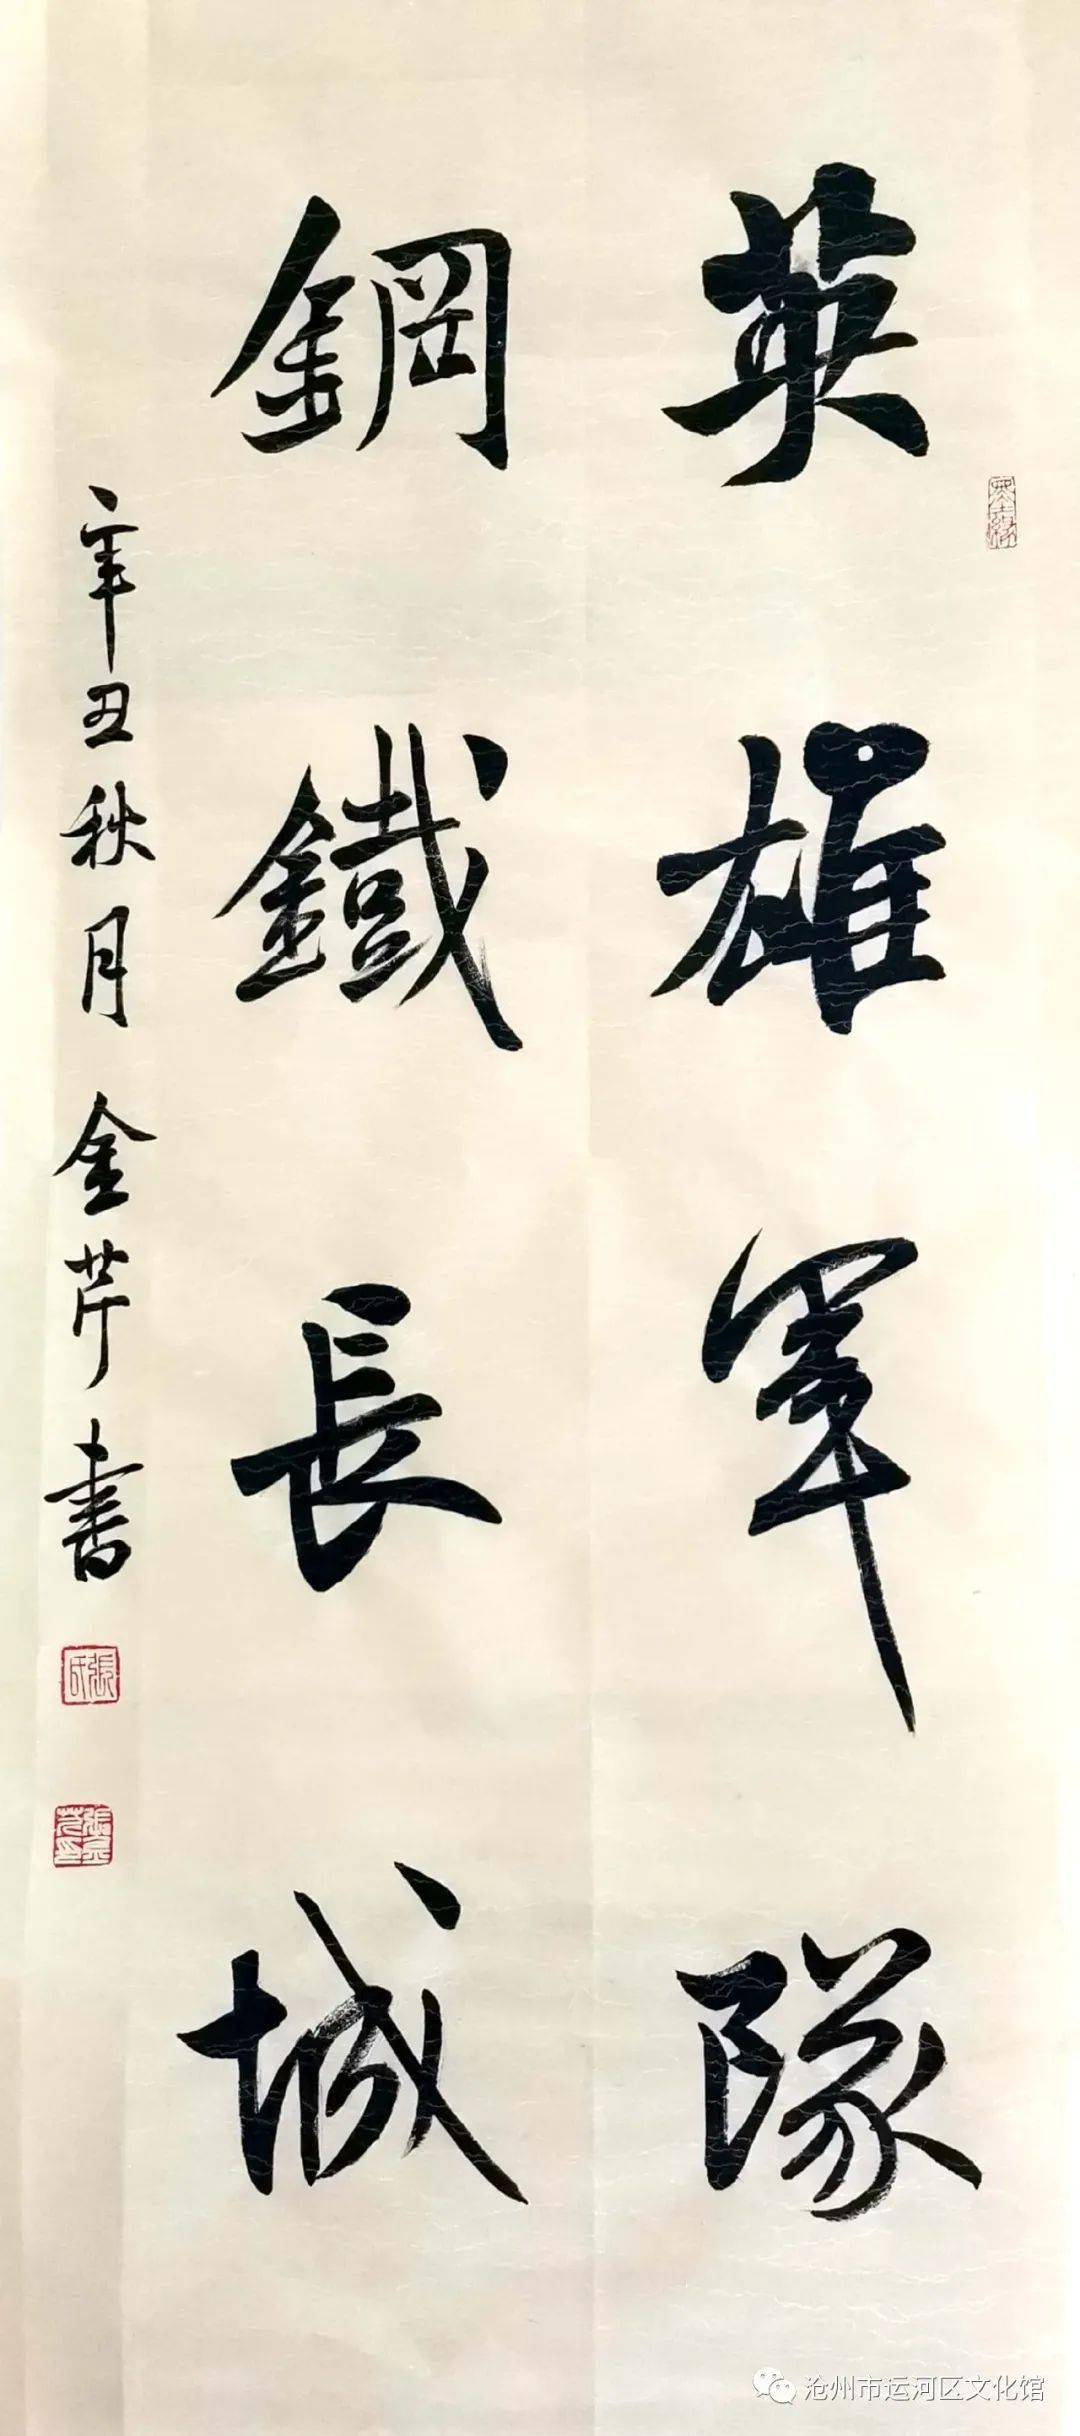 英雄军隊
鋼鐵長城
辛丑秋月金芹書
張氏
沧州市运河区文化馆